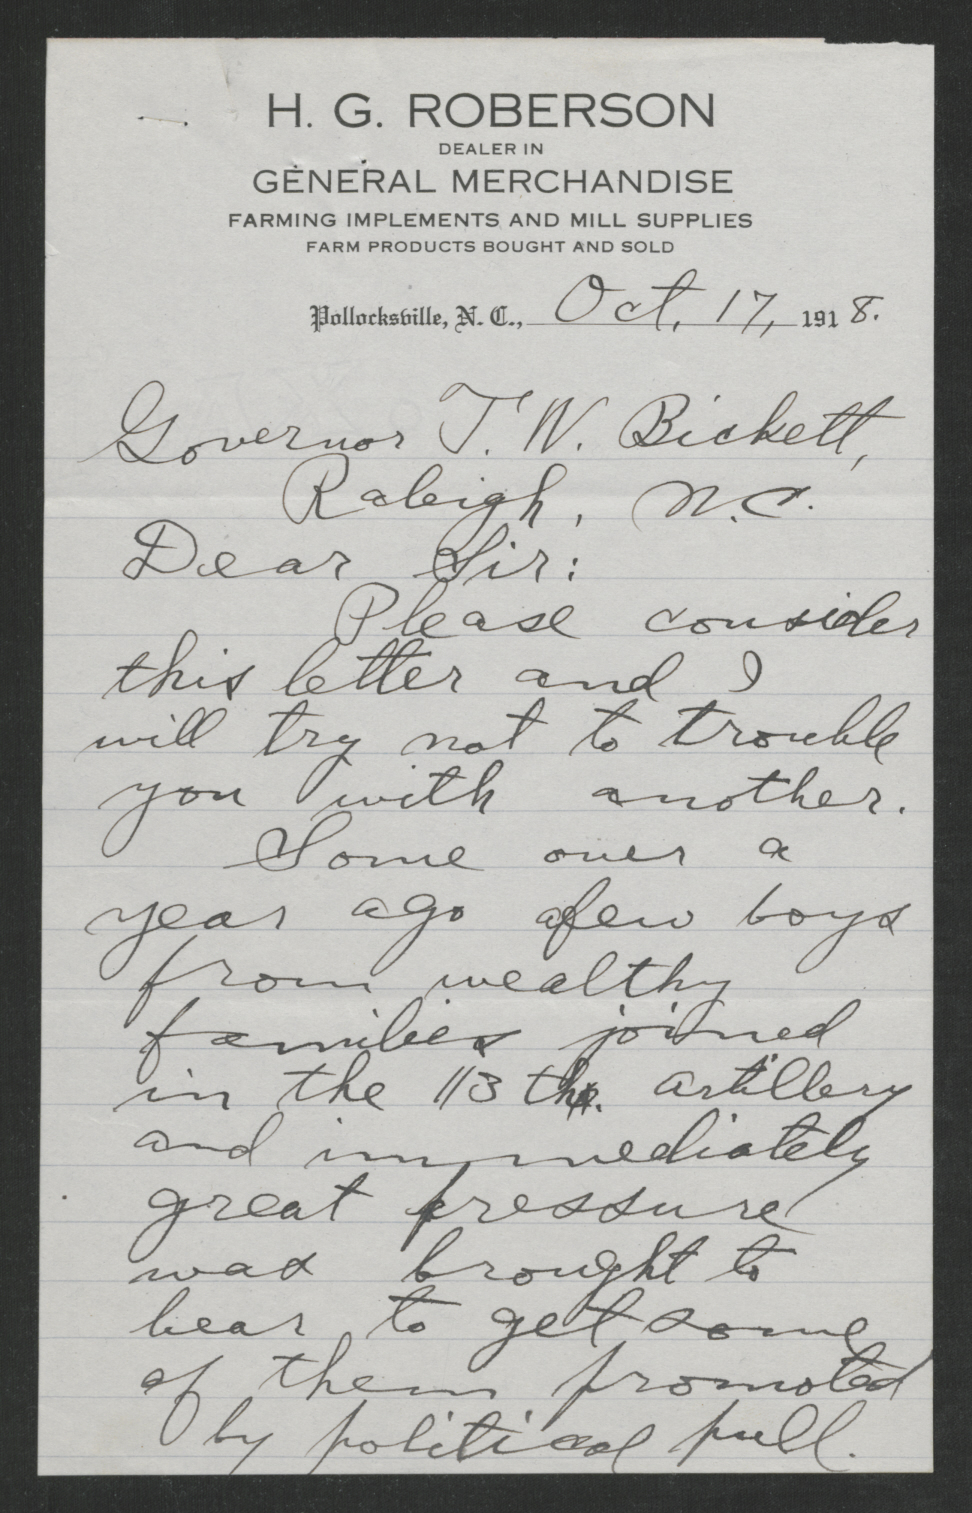 H. G. ROBERSON
DEALER IN
GENERAL MERCHANDISE
FARMING IMPLEMENTS AND MILL SUPPLIES
FARM PRODUCTS BOUGHT AND SOLD
Pollocksville, N. C., Oct. 17, 1918.
Governor T. W. Bickett,
Raleigh, N.C.
Dear Sir:
Please consider
this letter and I
will try not to trouble
you with another.
Some over a
year ago afew boys
from wealthy
families joined
in the 113 th. artillery
and immediately
great pressure
was brought to
bear to get some
of them promoted
by political pull.